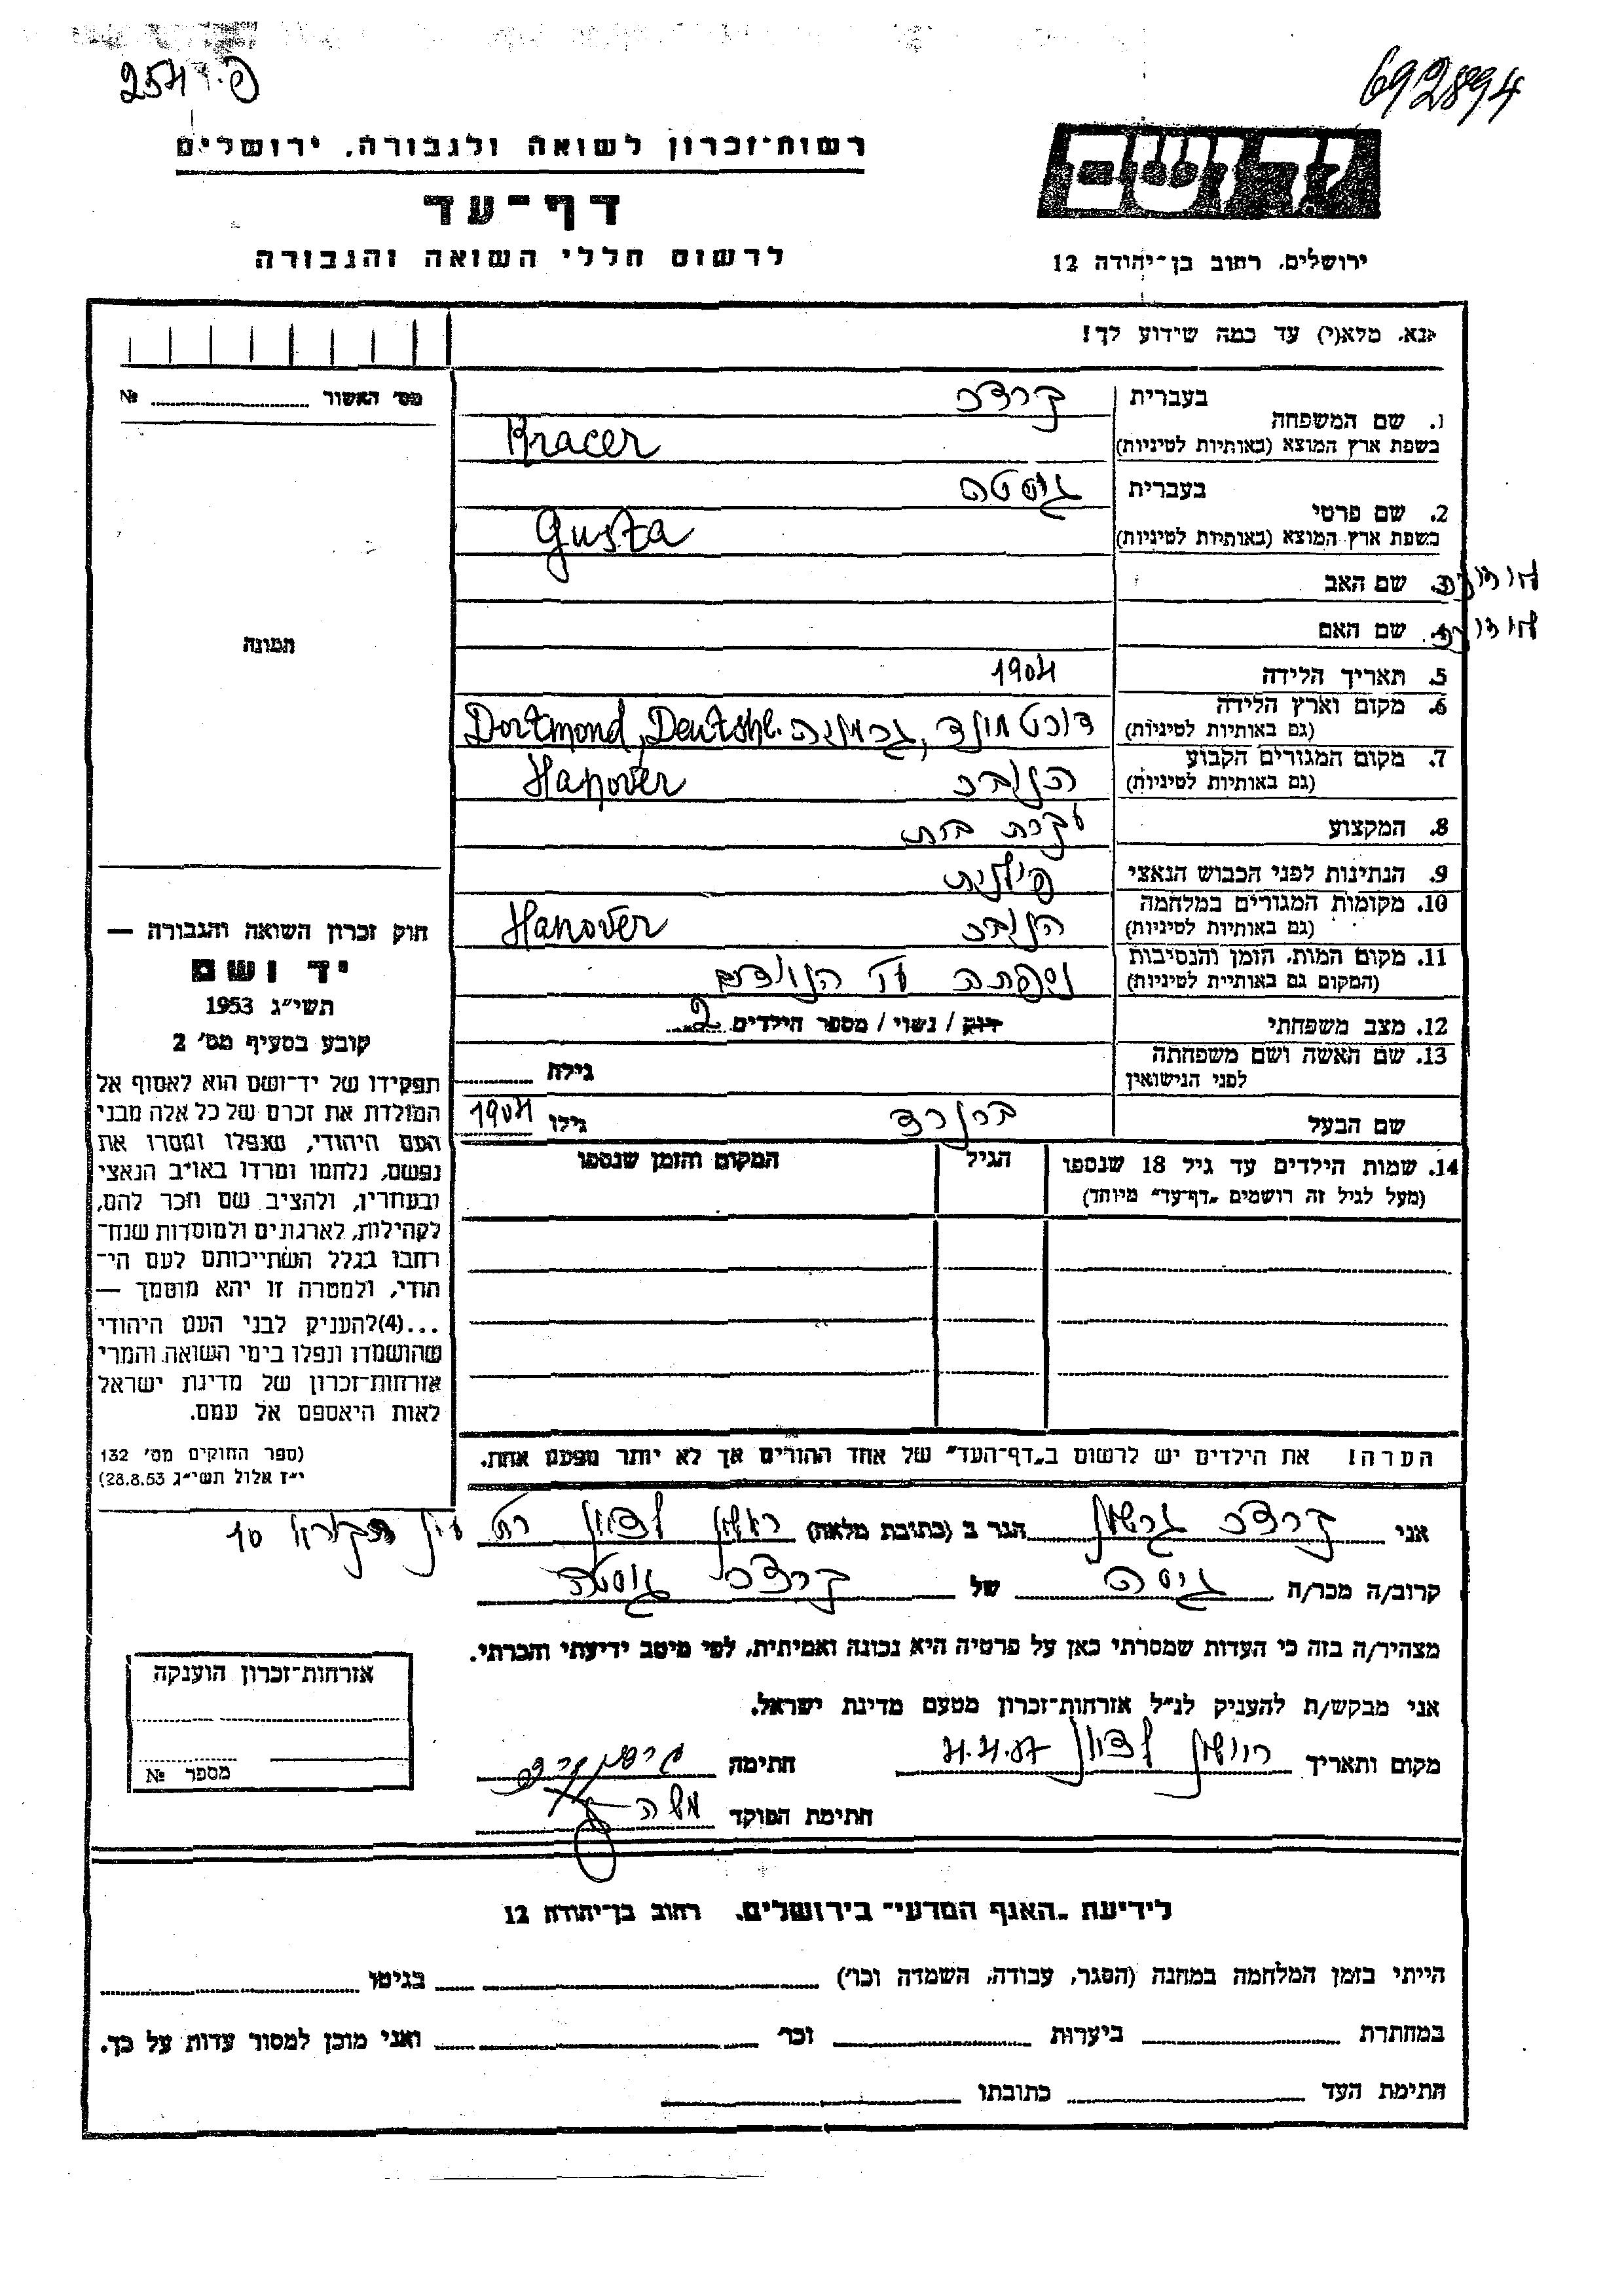 254 פ.
692894
רשות־זכרון לשואה ולגבורה, ירושלים
דף־עד
לרשום חללי השואה והגבורה
ידושם
ירושלים, רחוב בן־יהודה 12
נא, מלא(י) עד כמה שידוע לך!
מס׳ האשור № ............
1. שם המשפחה
בעברית קרצר
בשפת ארץ המוצא (באותיות לטיניות) Kracer
2. שם פרטי
בעברית גוסטה
בשפת ארץ המוצא (באותיות לטיניות) Gusta
3. שם האב
4. שם האם
תמונה
5. תאריך הלידה 1904
6. מקום וארץ הלידה
(גם באותיות לטיניות) דורטמונד, גרמניה Dortmond, Deutshl.
7. מקום המגורים הקבוע
(גם באותיות לטיניות) הנובר Hanover
8. המקצוע עקרת בית
9. הנתינות לפני הכבוש הנאצי פולנית
10. מקומות המגורים במלחמה
(גם באותיות לטיניות) הנובר Hanover
11. מקום המות, הזמן והנסיבות
(המקום גם באותיית לטיניות) נספתה
12. מצב משפחתי רוק / נשוי / מספר הילדים 2
13. שם האשה ושם משפחתה
לפני הנישואין גילה ............
שם הבעל ברנרד גילו 1904
14. שמות הילדים עד גיל 18 שנספו
(מעל לגיל זה רושמים „דף־עד״ מיוחד)
הגיל
המקום והזמן שנספו
הערה! את הילדים יש לרשום ב„דף־העד״ של אחד ההורים אך לא יותר מפעם אחת.
חוק זכרון השואה והגבורה —
יד ושם
תשי״ג 1953
קובע בסעיף מס׳ 2
תפקידו של יד־ושם הוא לאסוף אל
המולדת את זכרם של כל אלה מבני
העם היהודי, שנפלו ומסרו את
נפשם, נלחמו ומרדו באויב הנאצי
ובעוזריו, ולהציב שם וזכר להם,
לקהילות, לארגונים ולמוסדות שנח־
רבו בגלל השתייכותם לעם הי־
הודי, ולמטרה זו יהא מוסמך —
...(4)להעניק לבני העם היהודי
שהושמדו ונפלו בימי השואה והמרי
אזרחות־זכרון של מדינת ישראל
לאות היאספם אל עמם.
(ספר החוקים מס׳ 132
י״ז אלול תשי״ג 28.8.53)
אני קרצר גרשון הגר ב (כתובת מלאה) ראשון לציון רח׳ עין הקורא 10
קרוב/ה מכר/ה גיסה של קרצר גוסטה
מצהיר/ה בזה כי העדות שמסרתי כאן על פרטיה היא נכונה ואמיתית, לפי מיטב ידיעתי והכרתי.
אני מבקש/ת להעניק לנ״ל אזרחות־זכרון מטעם מדינת ישראל.
מקום ותאריך ראשון לציון 4.4.87 חתימה
חתימת הפוקד משה
אזרחות־זכרון הוענקה
מספר №
לידיעת „האגף המדעי״ בירושלים, רחוב בן־יהודה 12
הייתי בזמן המלחמה במחנה (הסגר, עבודה, השמדה וכו׳) ............ בגיטו ............
במחתרת ............ ביערות ............ וכו׳ ............ ואני מוכן למסור עדות על כך.
חתימת העד ............ כתובתו ............